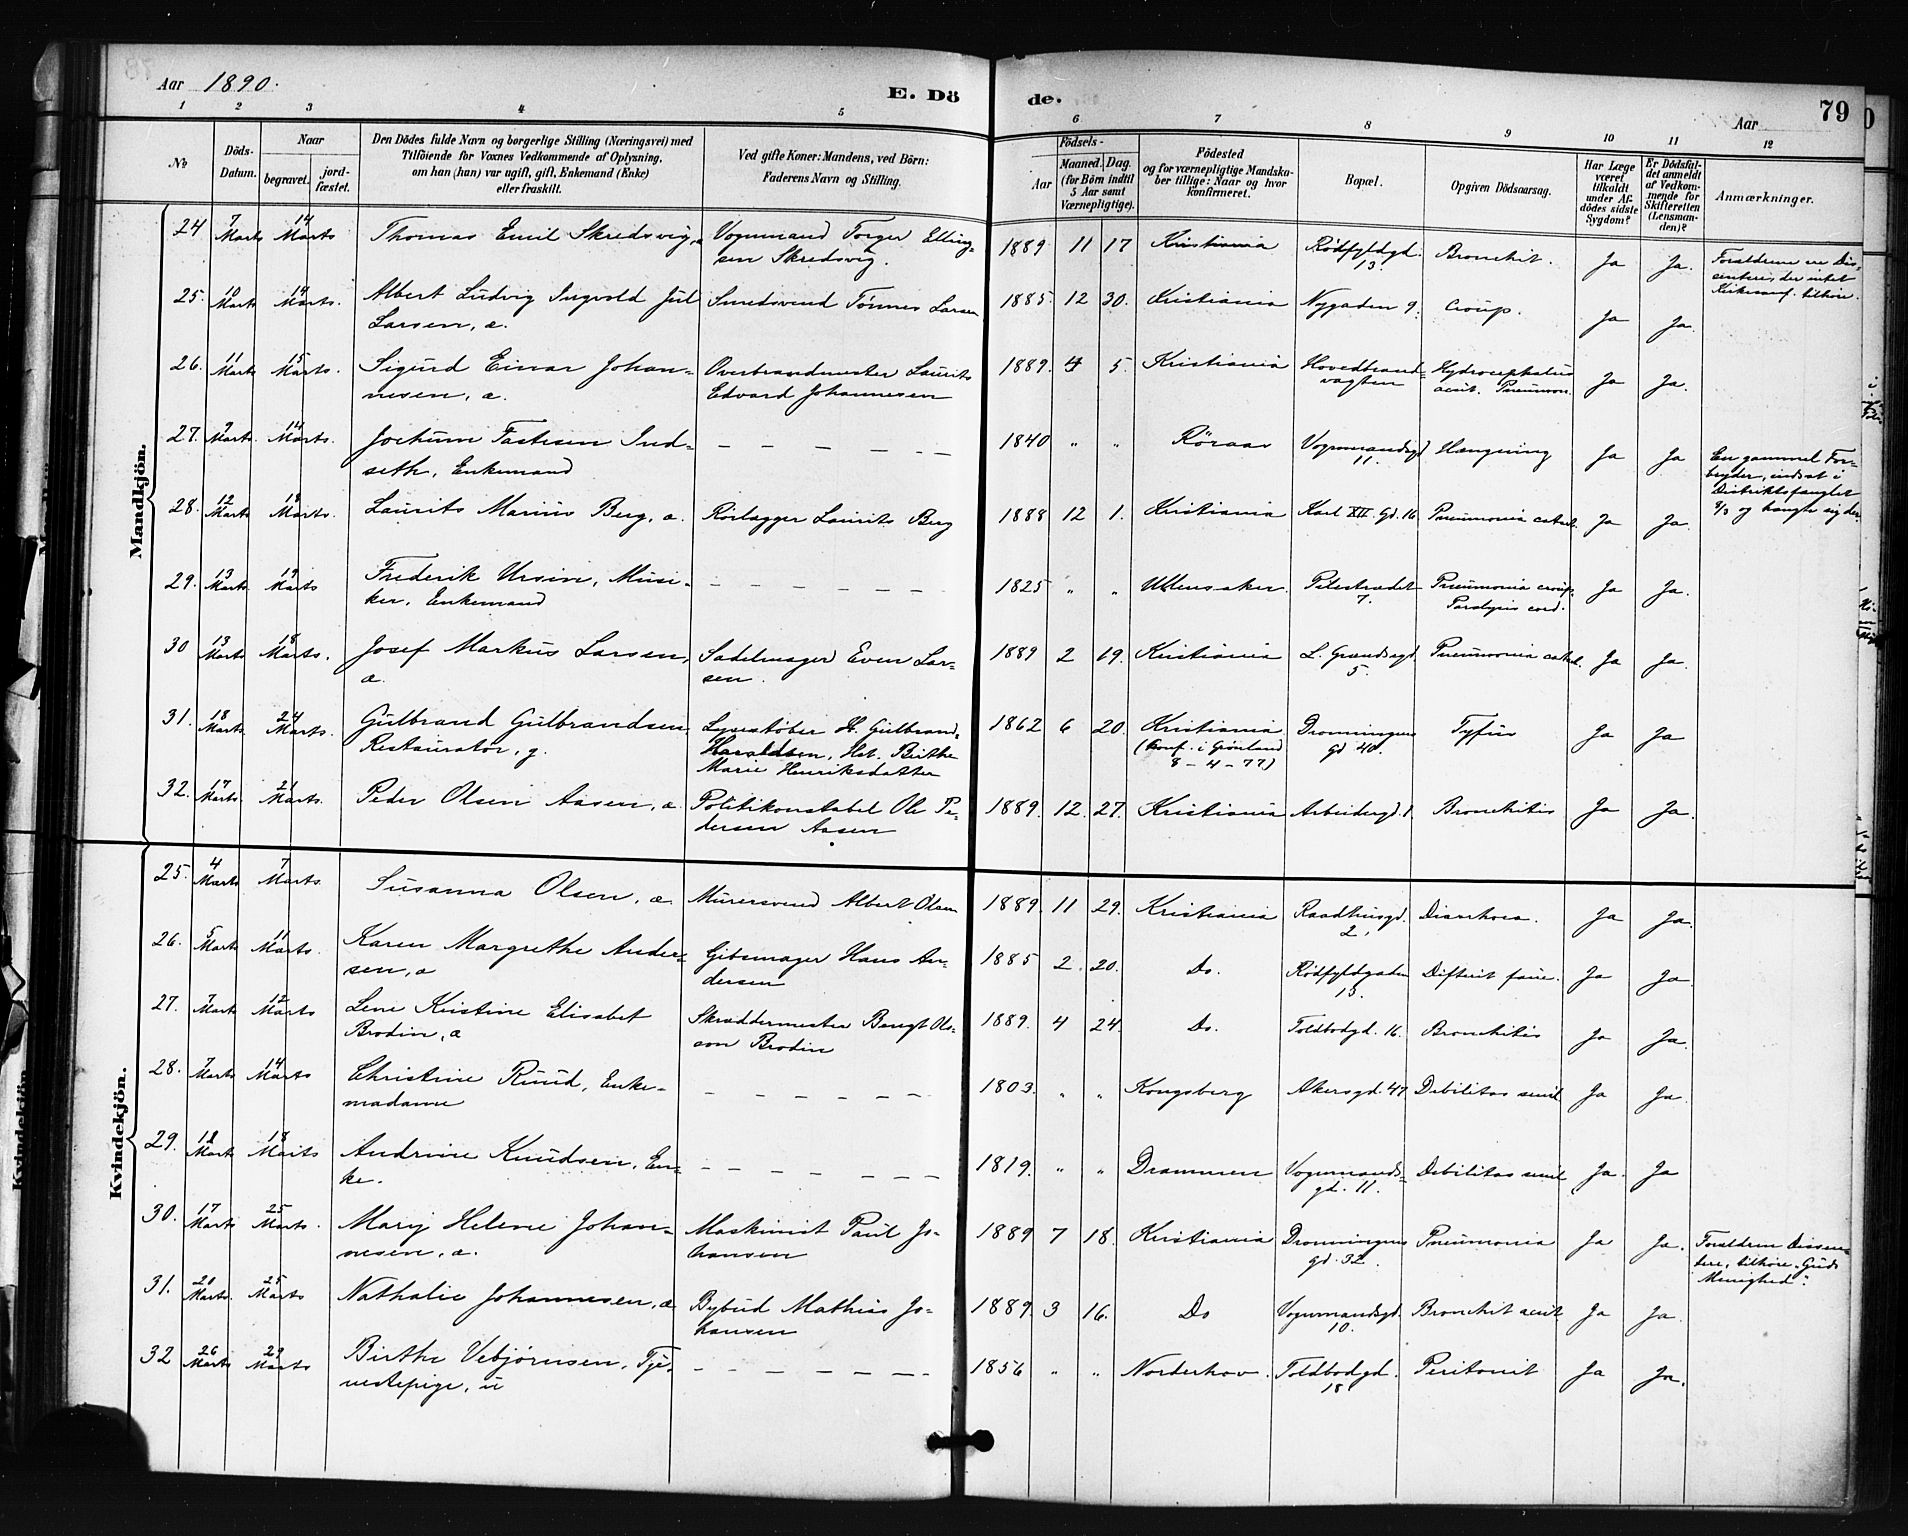 Aar 1890.
E. Döde.
Aar
79
1 2 3 4 5 6 7 8 9 10 11 12
No
Döds-Datum.
Naar
begravet.
jord-fæstet.
Den Dödes fulde Navn og borgerlige Stilling (Næringsvei) med
Tilföiende for Voxnes Vedkommende af Oplysning,
om han (hun) var ugift, gift, Enkemand (Enke)
eller fraskilt.
Ved gifte Koner: Mandens, ved Börn:
Faderens Navn og Stilling.
Födsels-
Aar
Maaned. Dag.
(for Börn indtil
5 Aar samt
Værnepligtige).
Födested
og for værnepligtige Mandska-
ber tillige: Naar og hvor
konfirmeret.
Bopæl.
Opgiven Dödsaarsag.
Har Læge
været
tilkaldt
under Af-
dödes sidste
Sygdom?
Er Dödsfal-
det anmeldt
af Vedkom-
mende for
Skifteretten
(Lensman-
den)?
Anmærkninger.
Mandkjön.
24 7 Marts 14 Marts Thomas Emil Skredsvig, Vognmand Torger Elling- 1889 11 17 Kristiania Rödfyldgd. Bronchit. Ja Ja. Forældrene ere Dis-
sen Skredsvig. 13. senter, der intet
Kirkesamf. tilhöre.
25. 10 Marts 14 Marts. Albert Ludvig Ingvold Jul Smedsvend Tönnes Larsen 1885. 12 30. Kristiania Nygaden 9. Croup. Ja Ja.
Larsen, æ.
26. 11 Marts 15 Marts. Sigurd Einar Johan- Overbrandmester Laurits 1889. 4 5. Kristiania Hovedbrand- Hydrocephalus Ja Ja.
nesen, æ. Edvard Johannesen vagten acut. Pneumon.
27. 9 Marts. 14 Marts. Jochum Ind- — — — — — — 1840 " " Röraas Vognmandsgd Hængning Ja Ja En gammel For-
seth, Enkemand 11. bryder, indsat i
Distriktsfængslet
og hængte sig der.
28. 12 Marts 18 Marts. Laurits Marius Berg, æ. Rörlægger Laurits Berg 1888 12 1. Kristiania Karl XII. Gd. 16 Pneumonia catarh. Ja Ja.
29. 13 Marts. 19 Marts Frederik Ursin, Musi- — — — — — — 1825 " " Ullensaker. Pilestrædet Pneumonia croup. Ja Ja.
ker, Enkemand 7. Paralysis cord.
30 13 Marts 18 Marts. Josef Markus Larsen, Sadelmager Even Lar- 1889 2 19. Kristiania L. Grændsegd. Pneumonia catarh. Ja Ja.
æ. sen. 5.
31. 18 Marts. 24 Marts. Gulbrand Gulbrandsen Lysestöber H. Gulbrand 1862 6 20. Kristiania Dronningens Tyfus Ja Ja
Restauratör, g. Haraldsen, Hst. Birthe (Conf. i Grönland Gd 40.
Marie Henriksdatter 8 - 4 - 77)
32. 17 Marts. 21 Marts. Peder Olsen Aasen, æ Politikonstabel Ole Pe- 1889. 12. 27. Kristiania Arbeidergd. 1. Bronchitis Ja Ja.
dersen Aasen
Kvindekjön.
25. 4 Marts 7 Marts. Susanna Olsen, æ. Murersvend Albert Olsen 1889. 11 29. Kristiania Raadhusgd. Diarrhoea. Ja Ja.
2.
26. 5 Marts 11 Marts. Karen Margrethe Ander- Gibsmager Hans An- 1885 2. 20. Do. Rödfyldgaden Difterit fauc. Ja Ja.
sen, æ dersen 15.
27. 7 Marts 12 Marts Lene Kristine Elisabet Skræddermester Bengt Ols- 1889. 4 24. Do. Toldbodgd. 16. Bronchitis Ja Ja.
Brodin, æ son Brodin
28. 7 Marts 14 Marts Christine Ruud, Enke- — — — — — — 1803. " " Kongsberg Akersgd. 47 Debilitas senil Ja Ja.
madame
29. 12 Marts 18 Marts Andrine Knudsen, En- — — — — — — 1819. " " Drammen Vognmands- Debilitas senil Ja. Ja
ke. gd. 11.
30. 17 Marts 25 Marts. Mary Helene Johan- Maskinist Paul Jo- 1889 7 18. Kristiania Dronningens Pneumonia Ja Ja. Forældrene Dissen-
nesen, æ. hansen gd. 32. tere, tilhöre „Guds
Menighed".
31. 20 Marts. 25 Marts Nathalie Johannesen, æ Bybud Mathias Jo- 1889. 3 16. Do Vognmandsgd. Bronchit acut Ja Ja.
hansen 10.
32 26 Marts 29 Marts Birthe Vebjörnsen, Tje- — — — — — — 1856 " " Norderhov. Toldbodgd. Peritonit Ja Ja.
nestepige, u 18